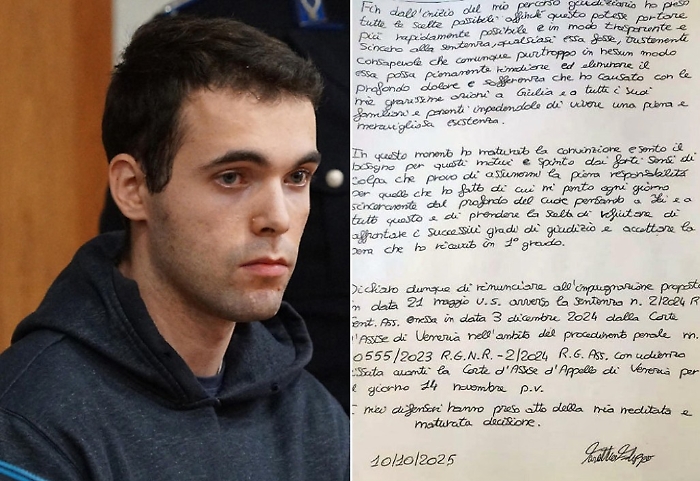 Fin dall'inizio del mio percorso giudiziario ho preso
tutte le scelte possibili affinché questo potesse portare
più rapidamente possibile e in modo trasparente e
sincero alla sentenza, qualsiasi essa fosse, tristemente
consapevole che comunque purtroppo in nessun modo
essa possa pienamente rimediare ed eliminare il
profondo dolore e sofferenza che ho causato con le
mie gravissime azioni a Giulia e a tutti i suoi
familiari e parenti impedendole di vivere una piena e
meravigliosa esistenza.
In questo momento ho maturato la convinzione e sento il
bisogno per questi motivi e spinto dai forti sensi di
colpa che provo di assumermi la piena responsabilità
per quello che ho fatto di cui mi pento ogni giorno
sinceramente dal profondo del cuore pensando a lei e a
tutto questo e di prendere la scelta di rifiutare di
affrontare i successivi gradi di giudizio e accettare la
pena che ho ricevuto in 1° grado.
Dichiaro dunque di rinunciare all'impugnazione proposta
in data 21 maggio u.s. avverso la sentenza n. 2/2024 R
Sent. Ass. emessa in data 3 dicembre 2024 dalla Corte
d'Assise di Venezia nell'ambito del procedimento penale nn.
0555/2023 R.G.N.R. - 2/2024 R.G. Ass. con udienza
fissata avanti la Corte d'Assise d'Appello di Venezia per
il giorno 14 novembre p.v.
I miei difensori hanno preso atto della mia meditata e
maturata decisione.
10/10/2025